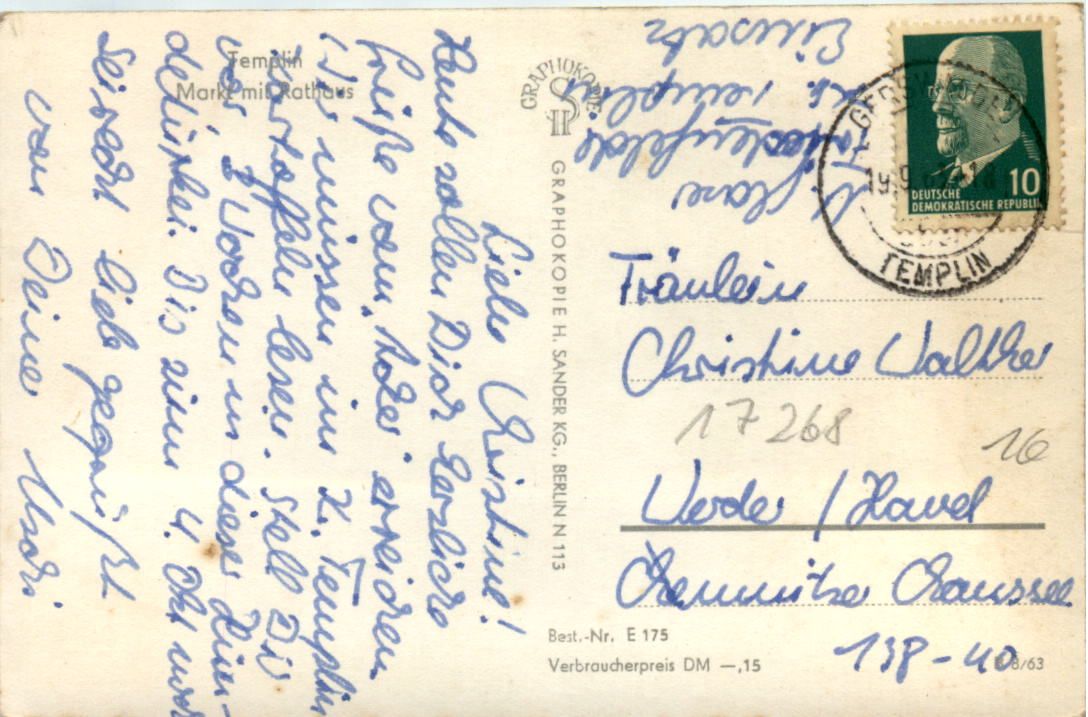 Templin
Markt mit Rathaus
Liebe Christine!
Heute sollen Dich herzliche
Grüße vom "hohen" erreichen
Wir müssen im K. Templin
Kartoffeln lesen. Stell Dir
vor 3 Wochen in dieser
Bis zum 4. Okt
Sei recht lieb gegrüßt
von Deiner Uschi
GRAPHOKOPIE
H S
GRAPHOKOPIE H. SANDER KG., BERLIN N 113
Einsatz
Kr. Templin
DEUTSCHE
DEMOKRATISCHE REPUBLIK
10
GERSWALDE
19.9.
TEMPLIN
Fräulein
Christine Walther
17268
16
Werder / Havel
Chemnitzer Chaussee
138-40
Best.-Nr. E 175
Verbraucherpreis DM —,15
8/63